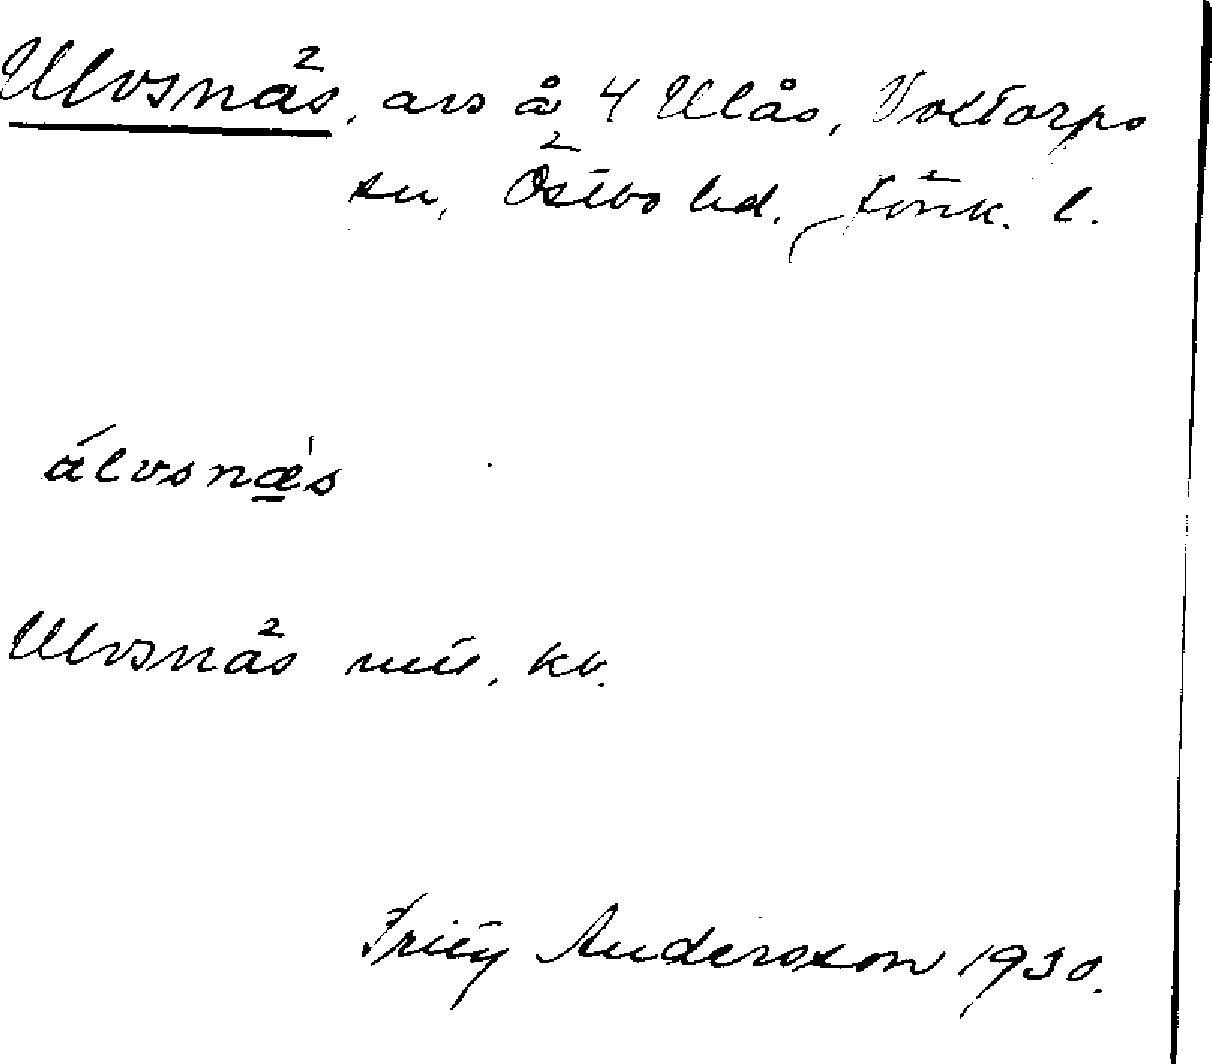 Ulvsnäs, avs å 4 Ulås, Voxtorps
sn, Östbo hd. Jönk. l.
álvsnæ̱̀s
Ulvsnäs mit. kv.
Fritz Andersson 1930.